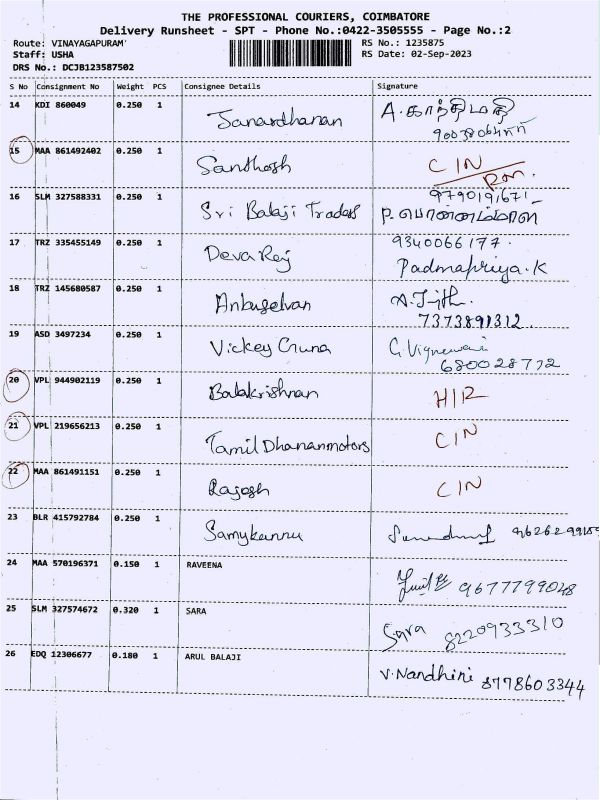 THE PROFESSIONAL COURIERS, COIMBATORE
Delivery Runsheet - SPT - Phone No.:0422-3505555 - Page No.:2
Route: VINAYAGAPURAM'
RS No.: 1235875
Staff: USHA
RS Date: 02-Sep-2023
DRS No.: DCJB123587502
S No Consignment No Weight PCS Consignee Details Signature
14 KDI 860049 0.250 1 Janardhanan A.காந்திமதி
15 MAA 861492402 0.250 1 Santhosh CIN
16 SLM 327588331 0.250 1 Sri Balaji Traders 9790191671
17 TRZ 335455149 0.250 1 Deva Raj 9340066177.
Padmapriya.K
18 TRZ 145680587 0.250 1 Anbuselvan A.Jijth.
7373891312.
19 ASD 3497234 0.250 1 Vickey Guna
680028772
20 VPL 944902119 0.250 1 Balakrishnan HIR
21 VPL 219656213 0.250 1 Tamil Dhananmotors CIN
22 MAA 861491151 0.250 1 Rajesh CIN
23 BLR 415792784 0.250 1 Samykannu
24 MAA 570196371 0.150 1 RAVEENA 9677799048
25 SLM 327574672 0.320 1 SARA Sara 8220933310
26 EDQ 12306677 0.180 1 ARUL BALAJI V.Nandhini 8778603344